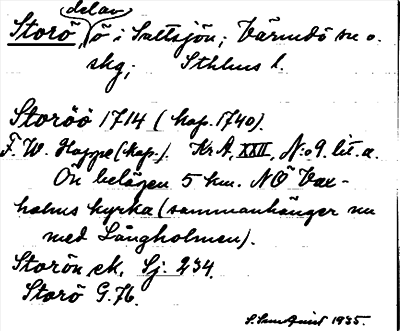 Storö, del av ö i Saltsjön; Värmdö sn o.
skg; Sthlms l.
Storöö 1714 (kop. 1740).
F. W. Hoppe (kop.). KrA, XXII, N:o 9. lit. a.
Ön belägen 5 km. NÖ Vax-
holms kyrka (sammanhänger nu
med Långholmen).
Storön ek. Sj. 234.
Storö G. 76.
1935.